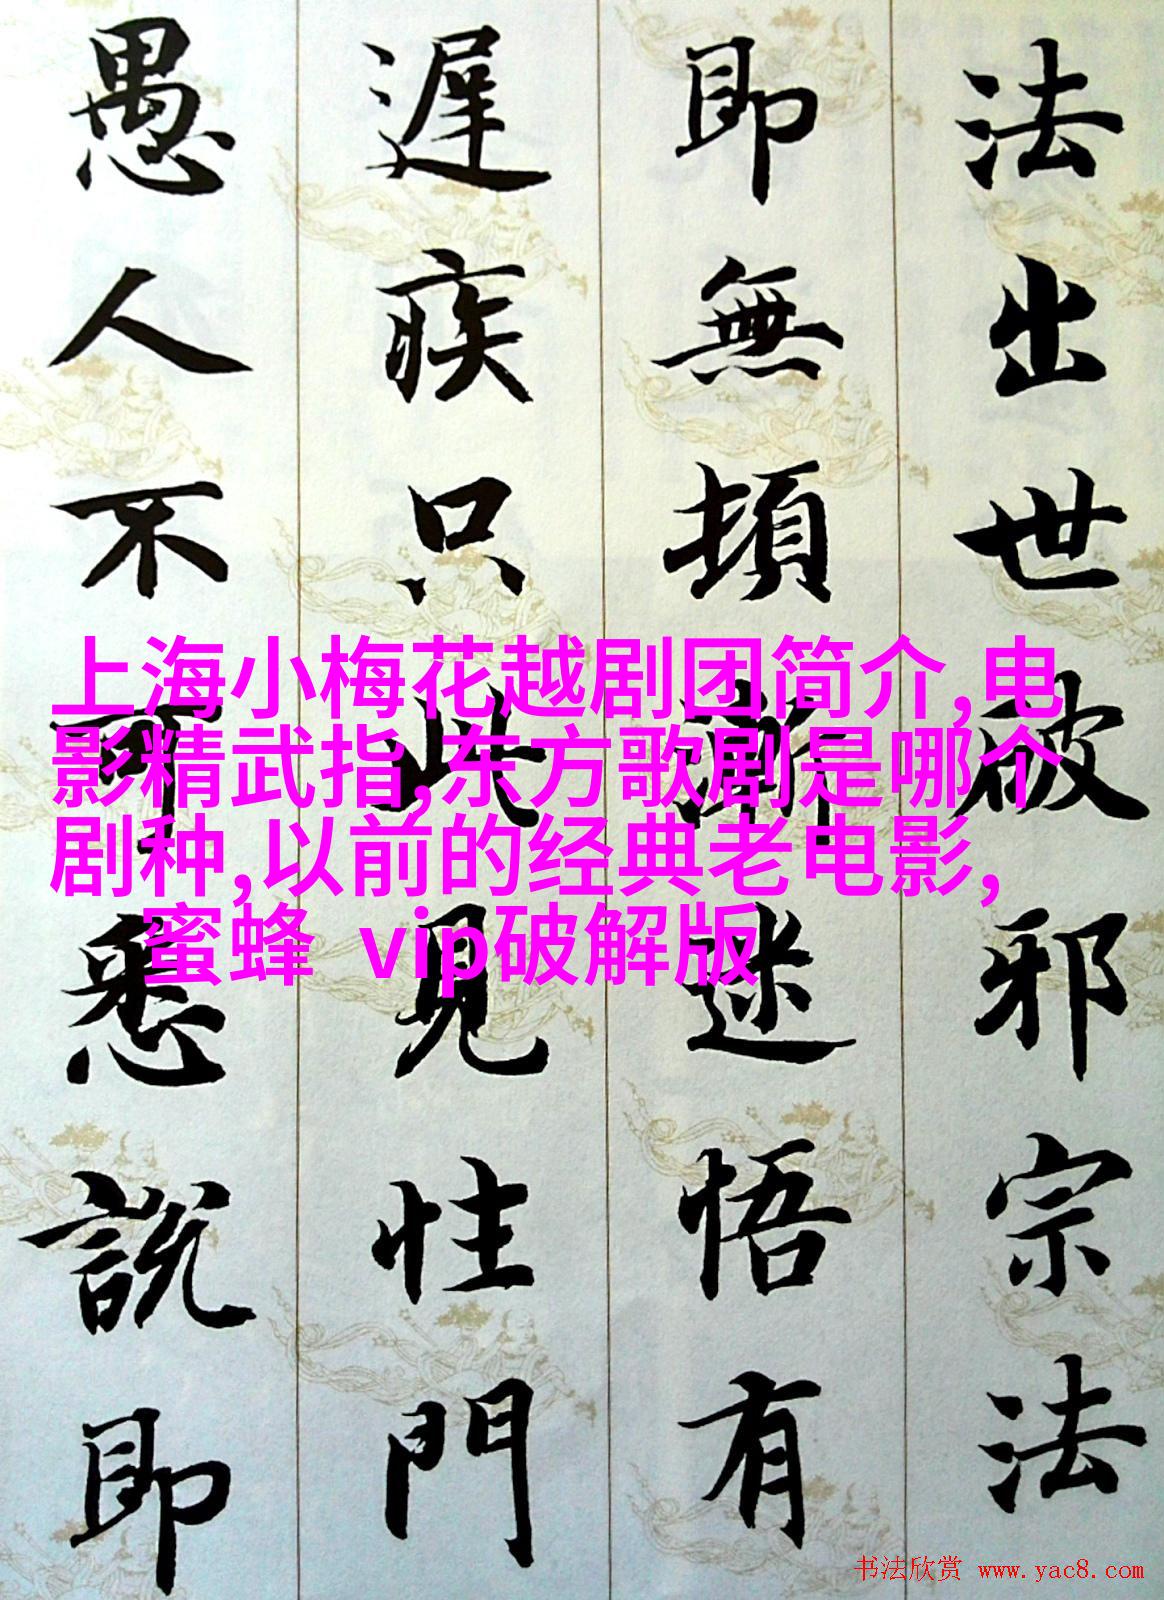 法出世破邪宗法
即無頓漸迷悟有
遲疾只此見性門
愚人不可悉說即
上海小梅花越剧团简介,电
影精武指,东方歌剧是哪个
剧种,以前的经典老电影,
蜜蜂 vip破解版
书法欣赏 www.yac8.com